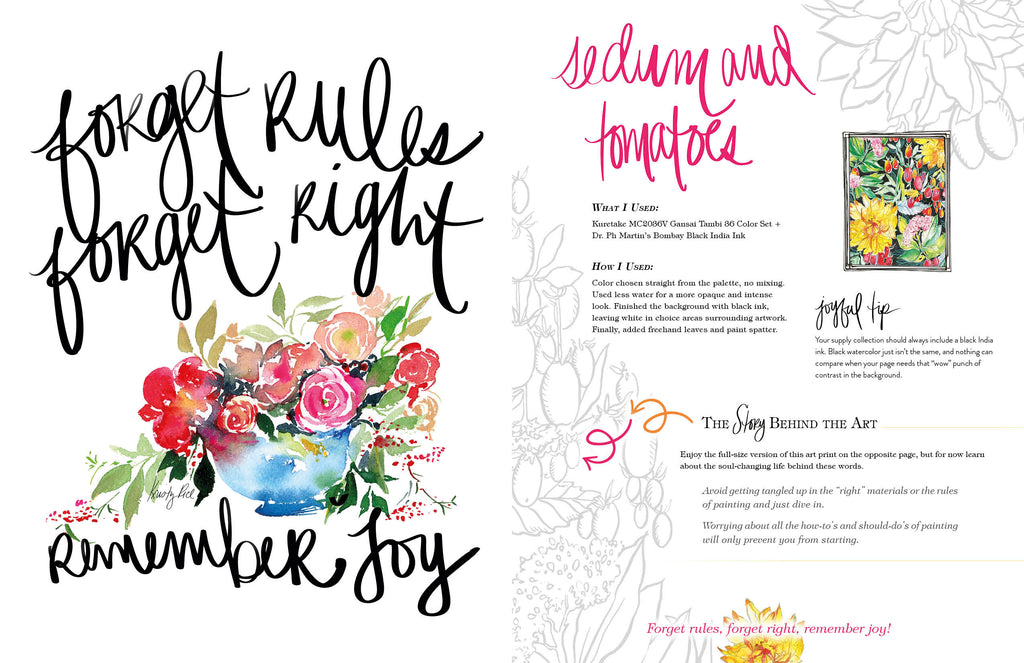 forget rules
forget right
Kristy Rice
remember joy
sedum and
tomatoes
What I Used:
Kuretake MC2036V Gansai Tambi 36 Color Set +
Dr. Ph Martin's Bombay Black India Ink
How I Used:
Color chosen straight from the palette, no mixing.
Used less water for a more opaque and intense
look. Finished the background with black ink,
leaving white in choice areas surrounding artwork.
Finally, added freehand leaves and paint spatter.
joyful tip
Your supply collection should always include a black India
ink. Black watercolor just isn't the same, and nothing can
compare when your page needs that "wow" punch of
contrast in the background.
The Story Behind the Art
Enjoy the full-size version of this art print on the opposite page, but for now learn
about the soul-changing life behind these words.
Avoid getting tangled up in the "right" materials or the rules
of painting and just dive in.
Worrying about all the how-to's and should-do's of painting
will only prevent you from starting.
Forget rules, forget right, remember joy!